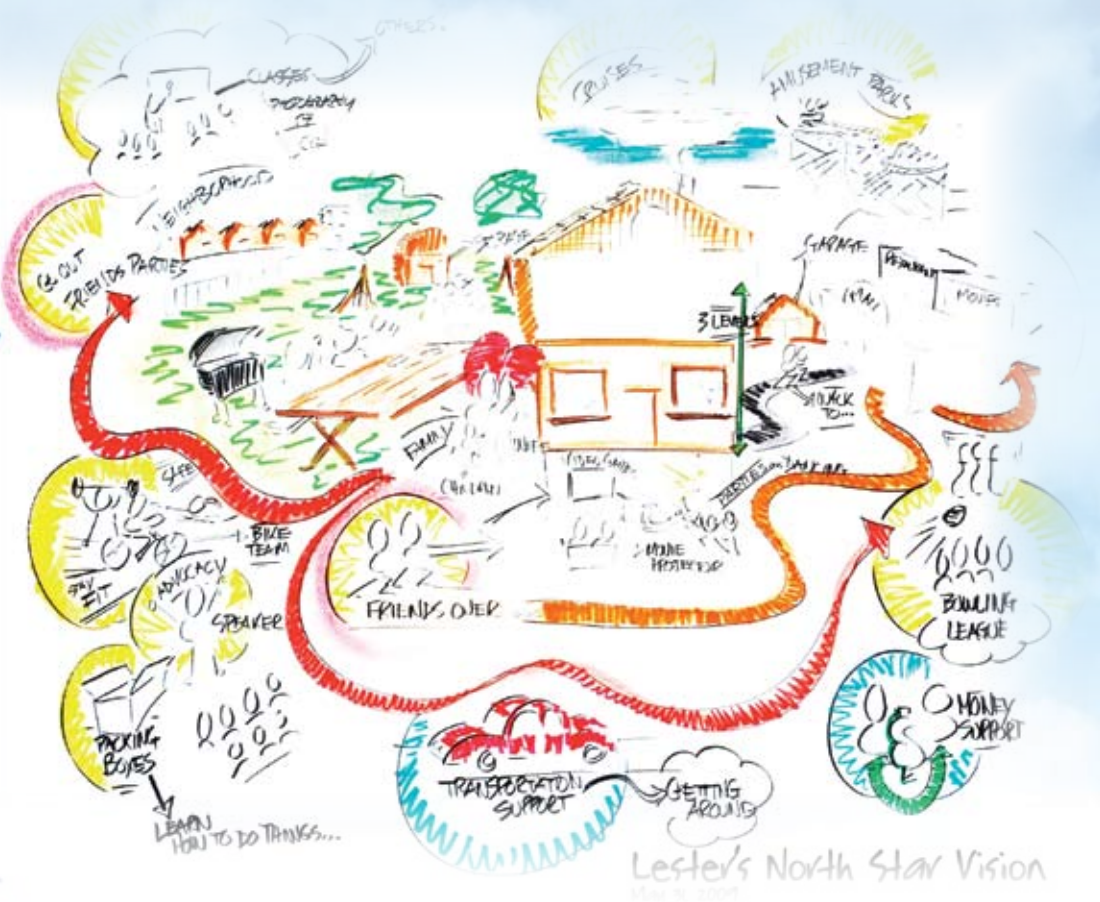 OTHERS.
CLASSES
PHOTOGRAPHY
CRUISES
AMUSEMENT PARKS
NEIGHBORHOOD
GO OUT
FRIENDS PARTIES
GARAGE
RESTAURANT
MOVIES
3 LEVELS
WALK
TO...
FAMILY
WIFE
CHILDREN
VIDEO GAMES
MOVIE
PROJECTOR
SAFE
BIKE
TEAM
STAY
FIT
ADVOCACY
SPEAKER
FRIENDS OVER
BOWLING
LEAGUE
MONEY
SUPPORT
PACKING
BOXES
LEARN
HOW TO DO THINGS...
TRANSPORTATION
SUPPORT
GETTING
AROUND
Lester's North Star Vision